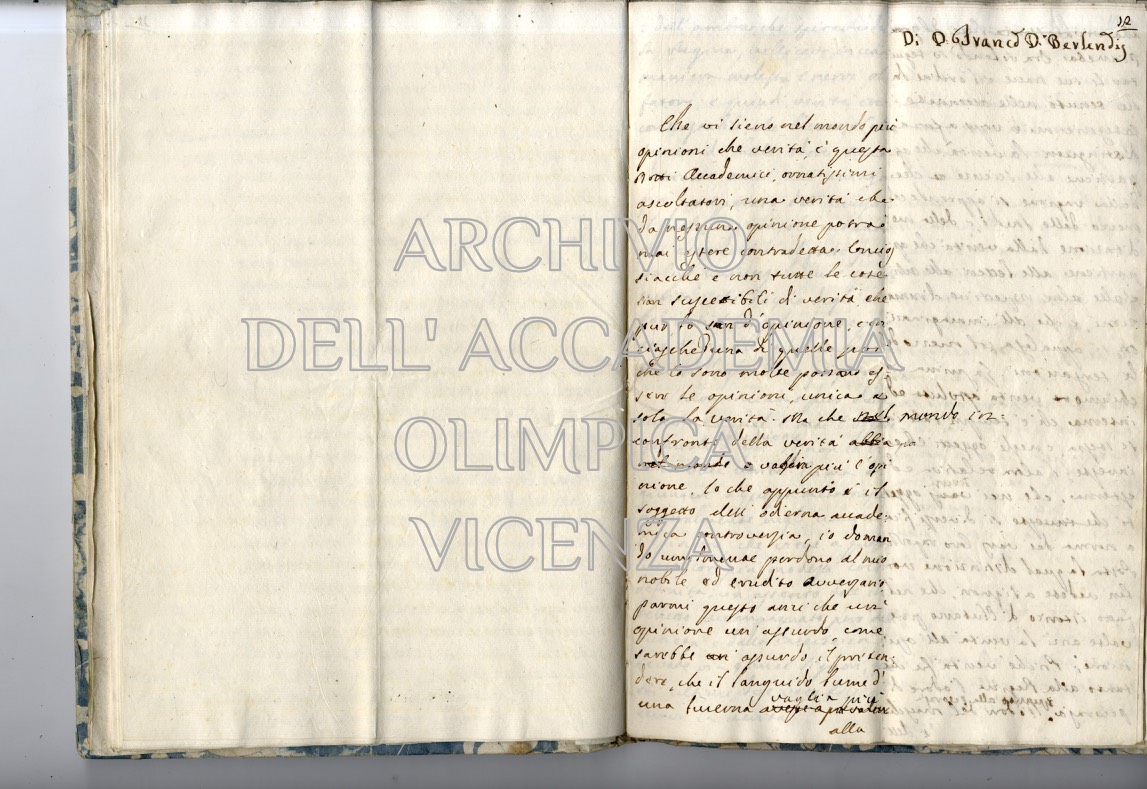 12
Di D. Franco D. Berlendis
Che vi sieno nel mondo più
opinioni che verità, è questa
Accademici, ornatissimi
ascoltatori, una verità che
da nessuna opinione potrà
mai essere contradetta. Concios
siacchè e non tutte le cose
son suscettibili di verità che
pur lo son d'opinione, e in
ciascheduna di quelle poi
che lo sono molte possano es-
sere le opinioni, unica e
sola la verità. Ma che nel mondo in
confronto della verità abbia
nel mondo e vaglia più l'opi
nione, lo che appunto è il
soggetto dell'odierna accade-
mica controversia, io doman
do umilmente perdono al mio
nobile ed erudito avversario
parmi questo anzi che un'
opinione un assurdo, come
sarebbe un assurdo il preten-
dere, che il languido lume d'
una lucerna vaglia più
alla
ARCHIVIO
DELL' ACCADEMIA
OLIMPICA
VICENZA